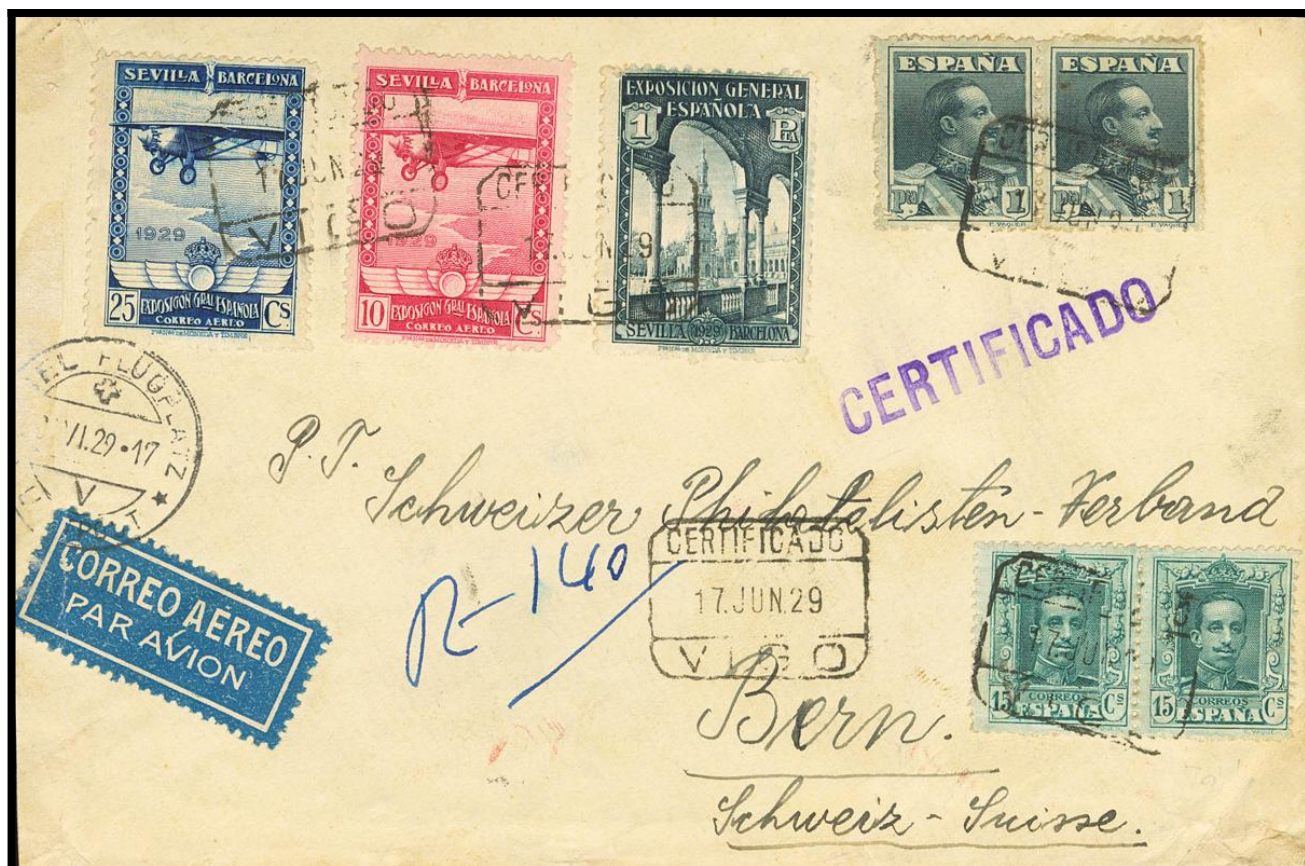 SEVILLA BARCELONA
1929
25 EXPOSICION GRAL ESPAÑOLA Cs
CORREO AEREO
SEVILLA BARCELONA
1929
10 EXPOSICION GRAL ESPAÑOLA Cs
CORREO AEREO
EXPOSICION GENERAL
ESPAÑOLA
1 PTA
SEVILLA 1929 BARCELONA
ESPAÑA
1
ESPAÑA
1
JUN 29
VIGO
17.JUN.29
VIGO
CERTIFICADO
FLUGPLATZ
VI.29·17
P. T.
Schweizer Philatelisten-Verband
CORREO AÉREO
PAR AVION
R-140
CERTIFICADO
17.JUN.29
VIGO
15 CORREOS Cs
ESPAÑA
15 CORREOS Cs
ESPAÑA
Bern.
Schweiz-Suisse.